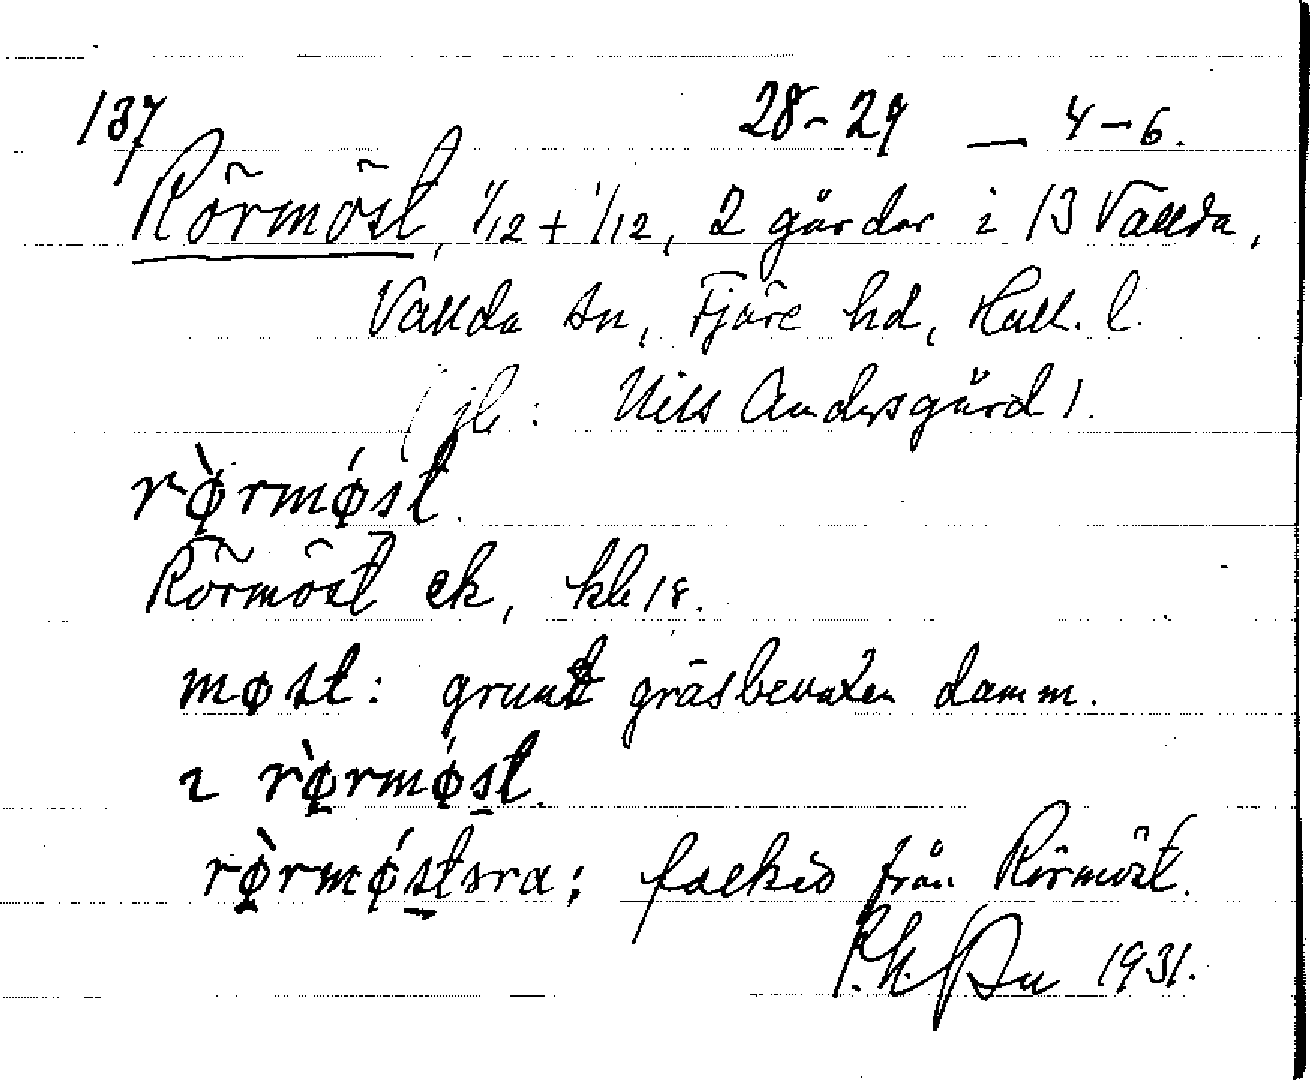 137 28-29 — 4-6.
Rörmöst, 1/12 + 1/12, 2 gårdar i 13 Vallda,
Vallda sn, Fjäre hd, Hall. l.
(jb: Nils Andersgård).
rø̀rmǿst.
Rörmöst ek, kbl 18.
møst: grunt gräsbevuxen damm.
ı rø̀rmǿst.
rø̀rmǿstsra: folket från Rörmöst.
1931.